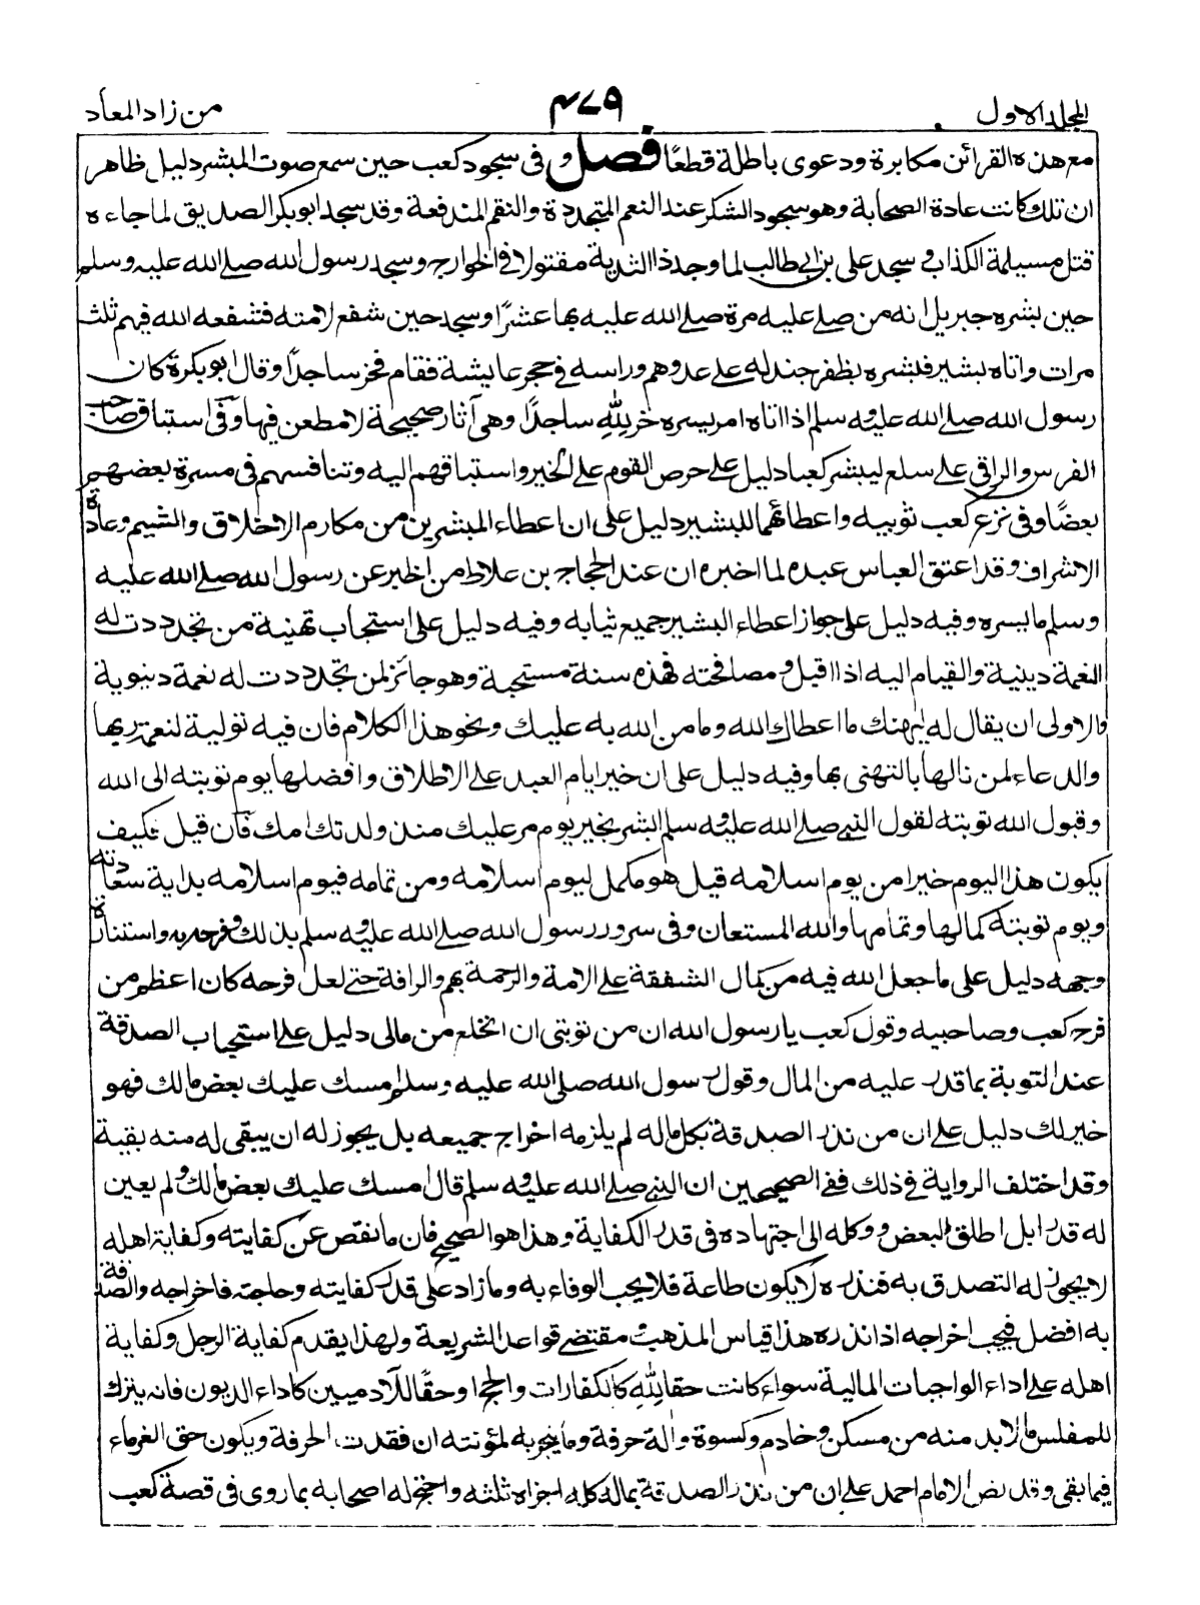 المجلد الاول
٤٧٩
من زاد المعاد
مع هذه القرائن مكابرة ودعوى باطلة قطعًا فصل وفى سجود كعب حين سمع صوت المبشر دليل ظاهر
ان تلك كانت عادة الصحابة وهو سجود الشكر عند النعم المتجددة والنقم المندفعة وقد سجد ابو بكر الصديق لما جاءه
قتل مسيلمة الكذاب و سجد على بن ابى طالب لما وجد ذا الثدية مقتولا فى الخوارج وسجد رسول الله صلے الله عليه وسلم
حين بشره جبريل انه من صلے عليه مرة صلے الله عليه بها عشرًا وسجد حين شفع لامته فشفعه الله فيهم ثلث
مرات واتاه بشير فبشره بظفر جند له علے عدوهم وراسه فے حجر عايشة فقام فخر ساجدًا وقال ابو بكرة كان
رسول الله صلے الله عليه وسلم اذا اتاه امر يسره خر لله ساجدًا وهى آثار صحيحة لا مطعن فيها وفى استباق صاحب
الفرس والراقى علے سلع ليبشر كعبا دليل علے حرص القوم علے الخير واستباقهم اليه وتنافسهم فى مسرة بعضهم
بعضًا وفى نزع كعب ثوبيه واعطائهما للبشير دليل على ان اعطاء المبشرين من مكارم الاخلاق والشيم وعادة
الاشراف وقد اعتق العباس عبده لما اخبره ان عند الحجاج بن علاط من الخبر عن رسول الله صلے الله عليه
وسلم ما يسره وفيه دليل على جواز اعطاء البشير جميع ثيابه وفيه دليل على استحباب تهنية من تجددت له
النعمة دينية والقيام اليه اذا اقبل و مصافحته فهذه سنة مستحبة وهو جائز لمن تجددت له نعمة دنيوية
والاولى ان يقال له ليهنك ما اعطاك الله وما من الله به عليك ونحو هذا الكلام فان فيه تولية لنعمة ربها
والدعاء لمن نالها بالتهنى بها وفيه دليل على ان خير ايام العبد علے الاطلاق وافضلها يوم توبته الى الله
وقبول الله توبته لقول النبے صلے الله عليه وسلم ابشر بخير يوم مر عليك منذ ولدتك امك فان قيل فكيف
يكون هذا اليوم خيرا من يوم اسلامه قيل هو مكمل ليوم اسلامه ومن تمامه فيوم اسلامه بداية سعادته
ويوم توبته كمالها وتمامها والله المستعان وفى سرور رسول الله صلے الله عليه وسلم بذلك وفرحه به واستنارة
وجهه دليل على ما جعل الله فيه من كمال الشفقة علے الامة والرحمة بهم والرافة حتے لعل فرحه كان اعظم من
فرح كعب وصاحبيه وقول كعب يا رسول الله ان من توبتى ان انخلع من مالى دليل علے استحباب الصدقة
عند التوبة بما قدر عليه من المال وقول رسول الله صلے الله عليه وسلم امسك عليك بعض مالك فهو
خير لك دليل علے ان من نذر الصدقة بكل ماله لم يلزمه اخراج جميعه بل يجوز له ان يبقى له منه بقية
وقد اختلف الرواية فے ذلك ففے الصحيحين ان النبے صلے الله عليه وسلم قال امسك عليك بعض مالك ولم يعين
له قدرا بل اطلق البعض ووكله الى اجتهاده فى قدر الكفاية وهذا هو الصحيح فان ما نقص عن كفايته وكفاية اهله
لا يجوز له التصدق به فنذره لا يكون طاعة فلا يجب الوفاء به وما زاد على قدر كفايته وحاجته فاخراجه والصدقة
به افضل فيجب اخراجه اذا نذره هذا قياس المذهب و مقتضے قواعد الشريعة ولهذا يقدم كفاية الرجل وكفاية
اهله علے اداء الواجبات المالية سواء كانت حقا لله كالكفارات والحج او حقًا للآدميين كاداء الديون فانه يترك
للمفلس ما لا بد منه من مسكن وخادم وكسوة وآلة حرفة وما يتجر به لمؤنته ان فقدت الحرفة ويكون حق الغرماء
فيما بقى وقد نص الامام احمد علے ان من نذر الصدقة بماله كله اجزاه ثلثه واحتج له اصحابه بما روى فى قصة كعب